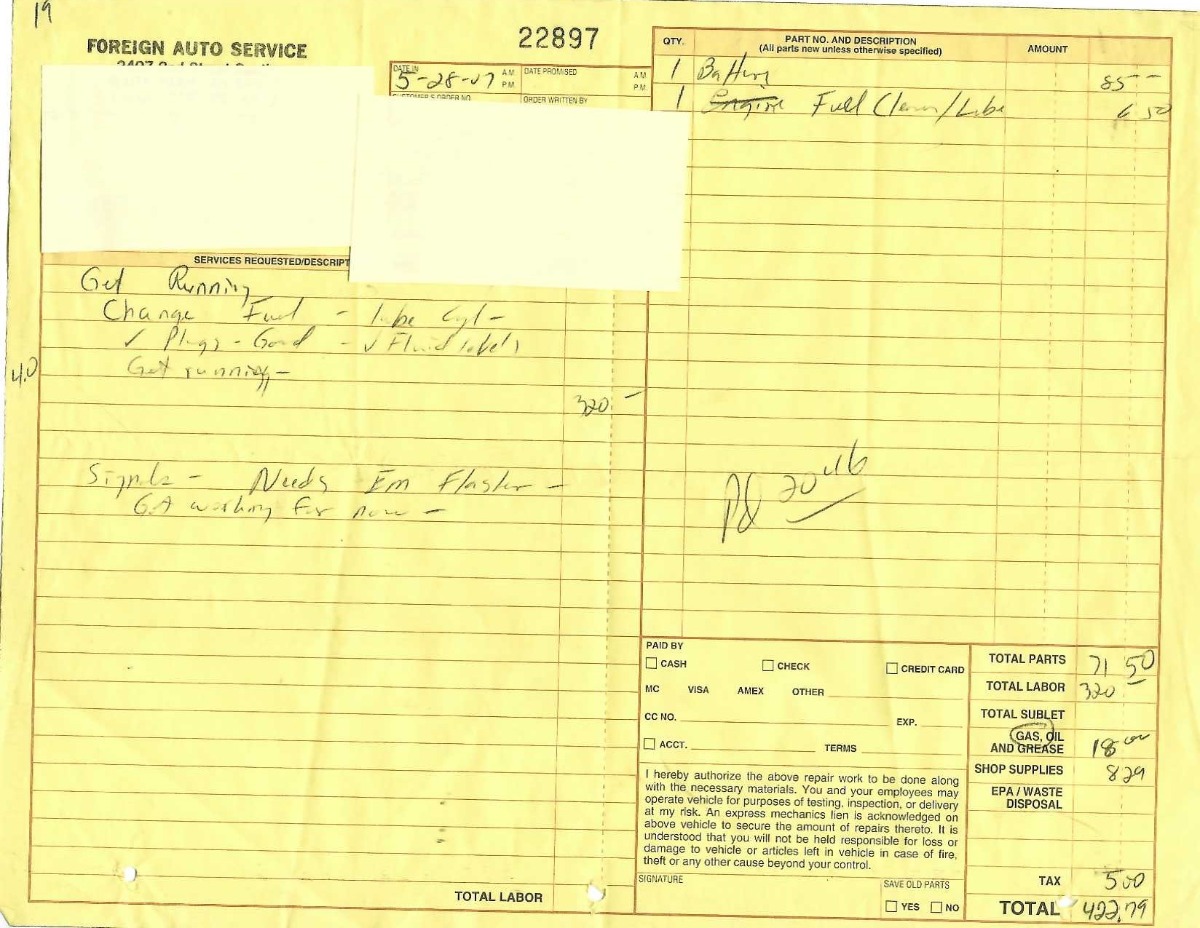 19
FOREIGN AUTO SERVICE
22897
DATE IN
5-28-07
A.M.
P.M.
DATE PROMISED
A.M.
P.M.
CUSTOMER'S ORDER NO.
ORDER WRITTEN BY
QTY.
PART NO. AND DESCRIPTION
(All parts new unless otherwise specified)
AMOUNT
1 Battery 85 --
1 Engine Fuel Clean/Lube 6 50
SERVICES REQUESTED/DESCRIPT
Get Running
Change Fuel - lube Cyl -
✓ Plugs - Good - ✓ Fluid levels
4.0
Get running -
320. -
Signals - Needs Em Flasher -
working for now -
Pd 20 46
PAID BY
CASH
CHECK
CREDIT CARD
MC VISA AMEX OTHER
CC NO. EXP.
ACCT. TERMS
I hereby authorize the above repair work to be done along
with the necessary materials. You and your employees may
operate vehicle for purposes of testing, inspection, or delivery
at my risk. An express mechanics lien is acknowledged on
above vehicle to secure the amount of repairs thereto. It is
understood that you will not be held responsible for loss or
damage to vehicle or articles left in vehicle in case of fire,
theft or any other cause beyond your control.
SIGNATURE
SAVE OLD PARTS
YES NO
TOTAL PARTS 71 50
TOTAL LABOR 320 -
TOTAL SUBLET
GAS, OIL
AND GREASE 18 00
SHOP SUPPLIES 8 29
EPA / WASTE
DISPOSAL
TAX 5 00
TOTAL 422.79
TOTAL LABOR